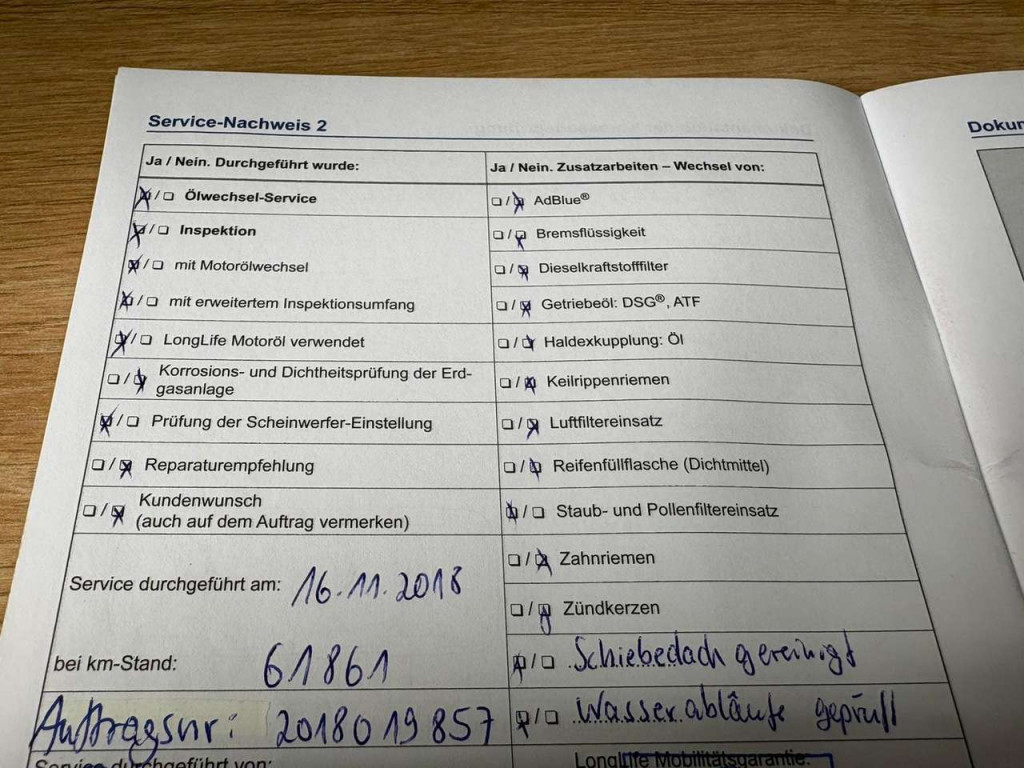 Service-Nachweis 2
Ja / Nein. Durchgeführt wurde:
☒ / ☐ Ölwechsel-Service
☒ / ☐ Inspektion
☒ / ☐ mit Motorölwechsel
☒ / ☐ mit erweitertem Inspektionsumfang
☒ / ☐ LongLife Motoröl verwendet
☐ / ☒ Korrosions- und Dichtheitsprüfung der Erd-
gasanlage
☒ / ☐ Prüfung der Scheinwerfer-Einstellung
☐ / ☒ Reparaturempfehlung
☐ / ☒ Kundenwunsch
(auch auf dem Auftrag vermerken)
Service durchgeführt am: 16.11.2018
bei km-Stand: 61861
Auftragsnr: 2018019857
Service durchgeführt von:
Ja / Nein. Zusatzarbeiten – Wechsel von:
☐ / ☒ AdBlue®
☐ / ☒ Bremsflüssigkeit
☐ / ☒ Dieselkraftstofffilter
☐ / ☒ Getriebeöl: DSG®, ATF
☐ / ☒ Haldexkupplung: Öl
☐ / ☒ Keilrippenriemen
☐ / ☒ Luftfiltereinsatz
☐ / ☒ Reifenfüllflasche (Dichtmittel)
☒ / ☐ Staub- und Pollenfiltereinsatz
☐ / ☒ Zahnriemen
☐ / ☒ Zündkerzen
☒ / ☐ Schiebedach gereinigt
☒ / ☐ Wasserabläufe geprüft
LongLife Mobilitätsgarantie: